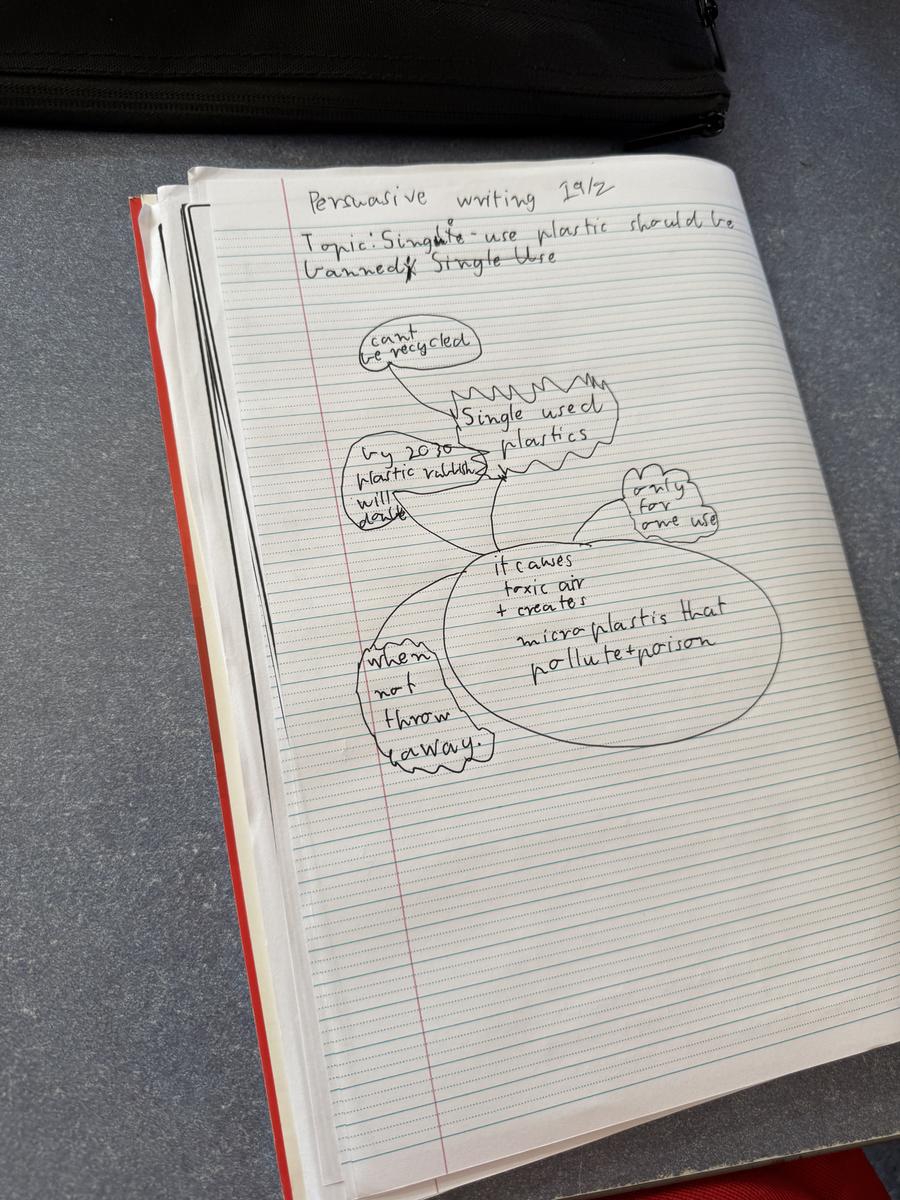 Persuasive writing 19/2
Topic: Single-use plastic should be
banned Single Use
cant
be recycled
Single used
plastics
by 2030
plastic rubbish
will
double
only
for
one use
it cawes
toxic air
+ creates
micro plastis that
pollute+poison
when
not
throw
away.